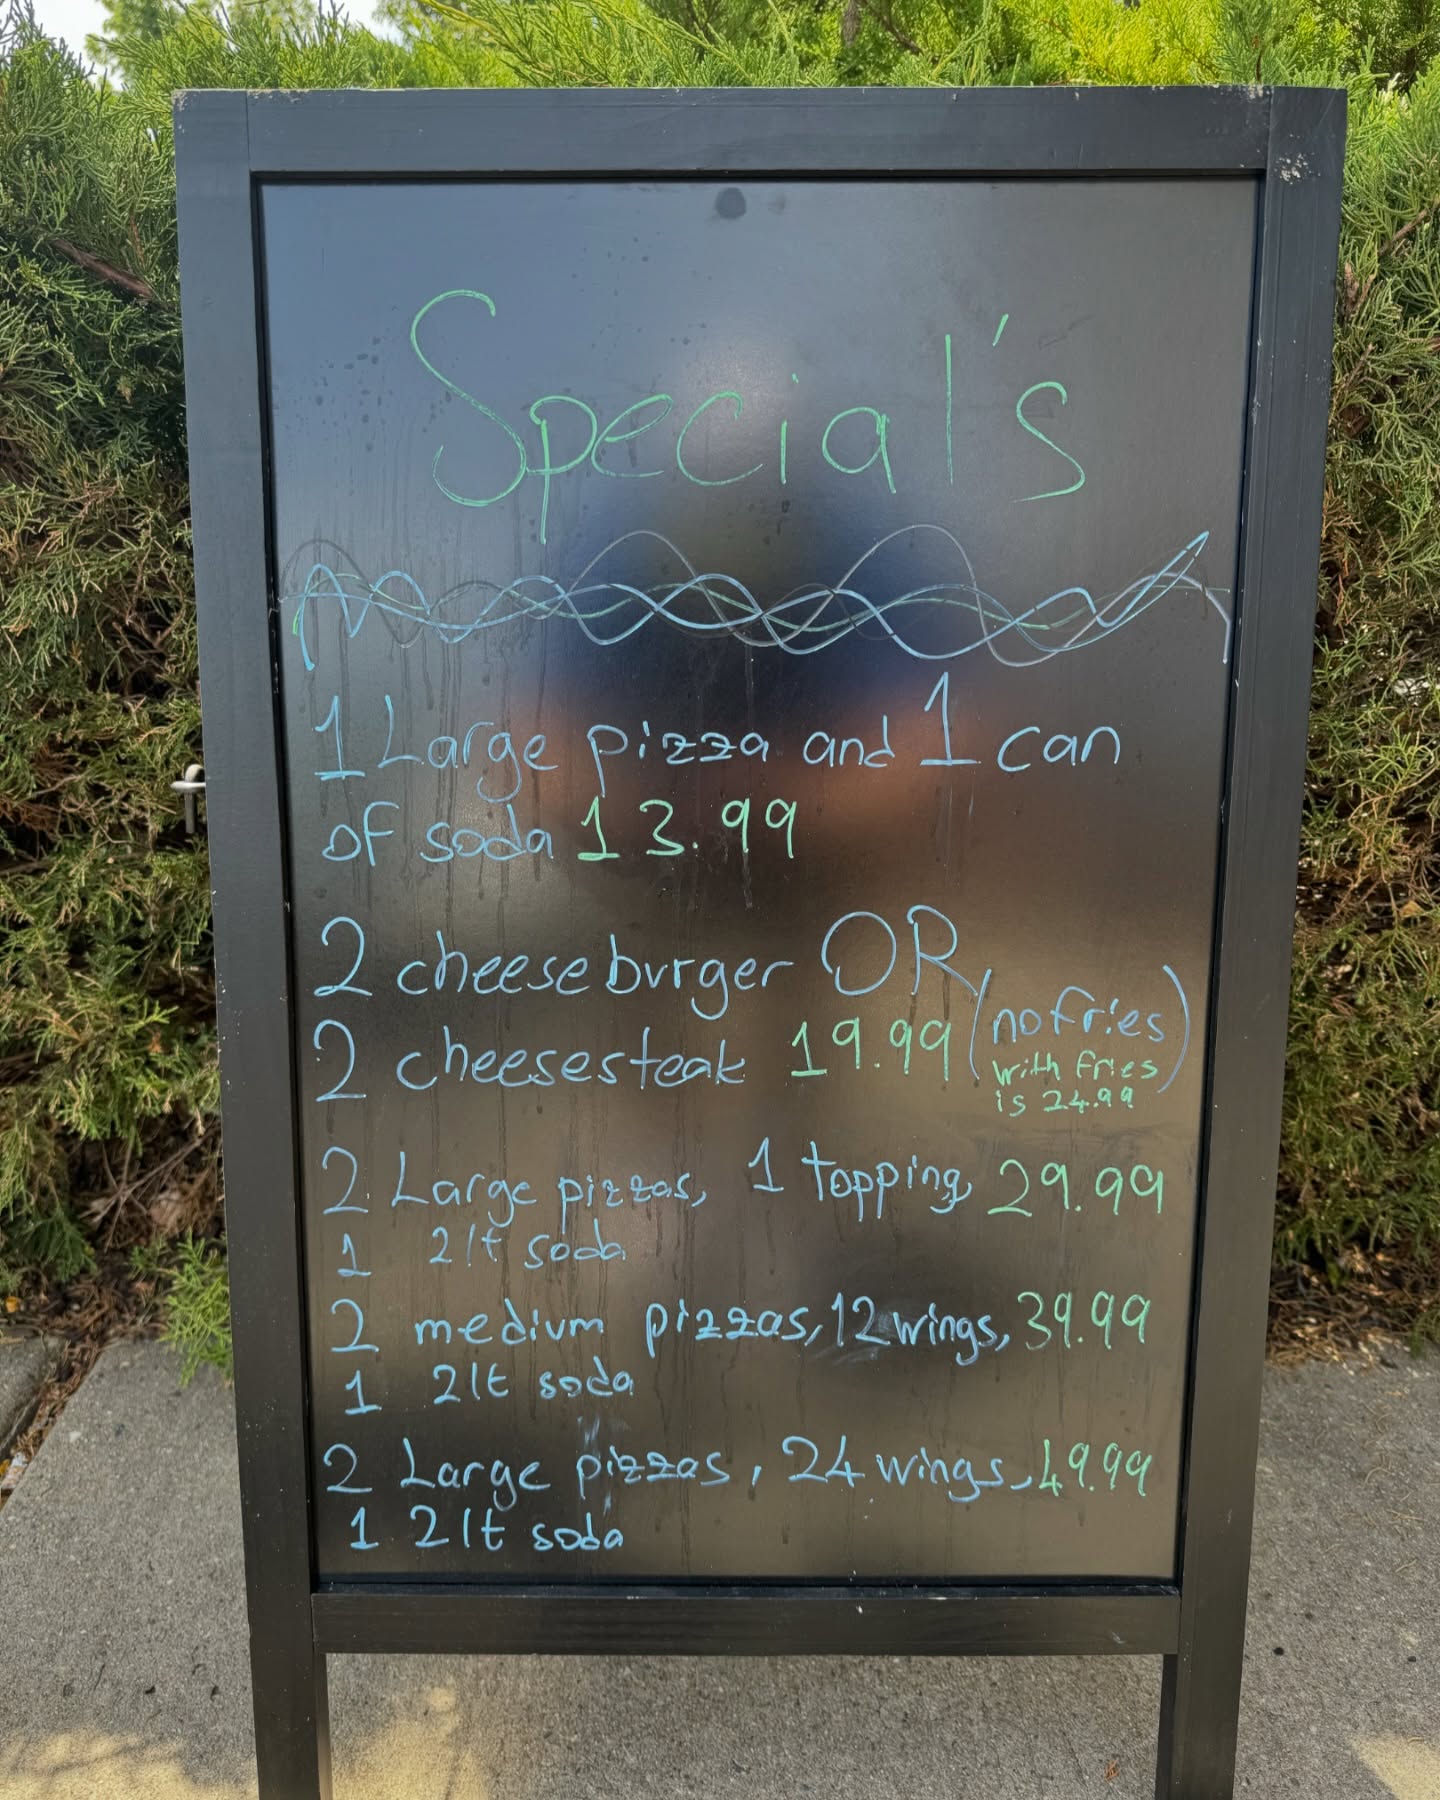 Special's
1 Large pizza and 1 can
of soda 13.99
2 cheeseburger OR
2 cheesesteak 19.99 (no fries)
with fries
is 24.99
2 Large pizzas, 1 topping, 29.99
1 2lt soda
2 medium pizzas, 12 wings, 39.99
1 2lt soda
2 Large pizzas, 24 wings, 49.99
1 2lt soda